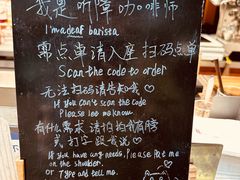 我是听障咖啡师
I'm a deaf barista
需点单请入座 扫码点单
Scan the code to order
无法扫码请告知我♡
If you can't scan the code
Please let me know.
有什么需求 请拍拍我肩膀
或打字跟我说♡
If you have any needs, Please Pat me
on the shoulder.
or Type and tell me.